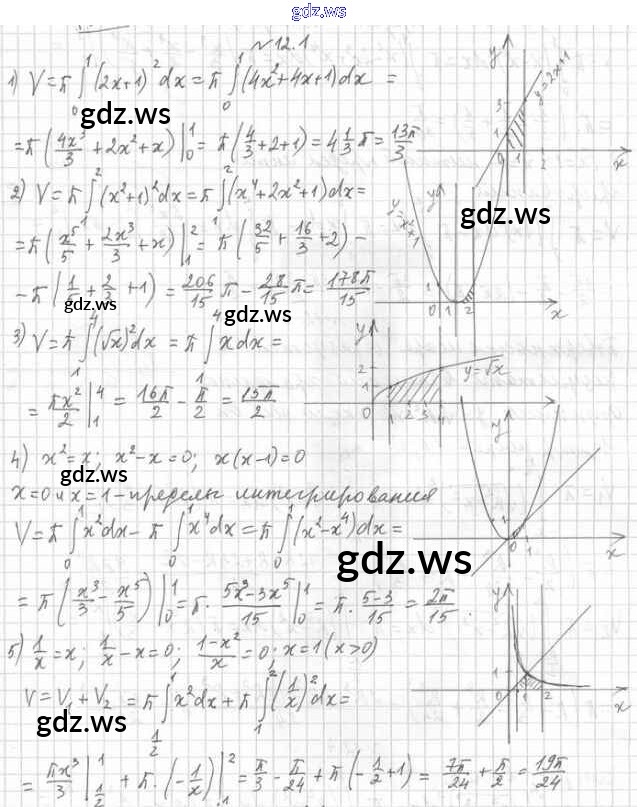 gdz.ws
№ 12.1
1) V = π∫₀¹(2x+1)²dx = π∫₀¹(4x²+4x+1)dx =
gdz.ws
= π(4x³/3 + 2x² + x)|₀¹ = π(4/3+2+1) = 4 1/3 π = 13π/3
2) V = π∫₁²(x²+1)²dx = π∫₁²(x⁴+2x²+1)dx =
= π(x⁵/5 + 2x³/3 + x)|₁² = π(32/5 + 16/3 + 2) -
- π(1/5 + 2/3 + 1) = 206/15 π - 28/15 π = 178π/15
gdz.ws
gdz.ws
3) V = π∫₁⁴(√x)²dx = π∫₁⁴ x dx =
= πx²/2 |₁⁴ = 16π/2 - π/2 = 15π/2
4) x² = x; x² - x = 0; x(x-1) = 0
gdz.ws
x=0 и x=1 - пределы интегрирования
V = π∫₀¹x²dx - π∫₀¹x⁴dx = π∫₀¹(x²-x⁴)dx =
gdz.ws
= π(x³/3 - x⁵/5)|₀¹ = π · 5x³-3x⁵/15 |₀¹ = π · 5-3/15 = 2π/15.
5) 1/x = x; 1/x - x = 0; 1-x²/x = 0; x=1 (x>0)
V = V₁ + V₂ = π∫_{1/2}^1 x²dx + π∫₁²(1/x)²dx =
gdz.ws
= πx³/3 |_{1/2}^1 + π · (-1/x)|₁² = π/3 - π/24 + π(-1/2+1) = 7π/24 + π/2 = 19π/24
y
y=2x+1
3
1
0 1 2
x
gdz.ws
y
y=x²+1
1
0 1 2
x
y
2
1
y=√x
0 1 2 3 4
x
y
1
0 1
x
y
1
0 1 2
x